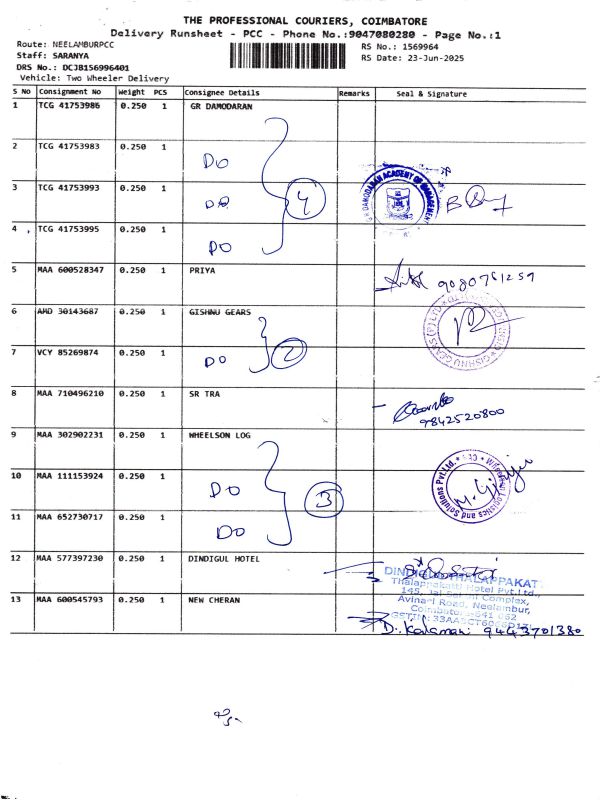 THE PROFESSIONAL COURIERS, COIMBATORE
Delivery Runsheet - PCC - Phone No.:9047080280 - Page No.:1
Route: NEELAMBURPCC
RS No.: 1569964
Staff: SARANYA
RS Date: 23-Jun-2025
DRS No.: DCJB156996401
Vehicle: Two Wheeler Delivery
S No Consignment No Weight PCS Consignee Details Remarks Seal & Signature
1 TCG 41753986 0.250 1 GR DAMODARAN
2 TCG 41753983 0.250 1 DO
3 TCG 41753993 0.250 1 DO 4
GR DAMODARAN ACADEMY OF MANAGEMENT
4 TCG 41753995 0.250 1 DO
5 MAA 600528347 0.250 1 PRIYA 9080761259
6 AMD 30143687 0.250 1 GISHNU GEARS
GISHNU GEARS (P) LTD
7 VCY 85269874 0.250 1 DO 2
8 MAA 710496210 0.250 1 SR TRA
9842520800
9 MAA 302902231 0.250 1 WHEELSON LOG
10 MAA 111153924 0.250 1 DO 3
Logistics and Solutions Pvt.Ltd.
11 MAA 652730717 0.250 1 DO
12 MAA 577397230 0.250 1 DINDIGUL HOTEL
DINDIGUL THALAPPAKAT
Thalappakatti Hotel Pvt.Ltd.,
Complex,
Avinashi Road, Neelambur,
Coimbatore-641 062
13 MAA 600545793 0.250 1 NEW CHERAN
D. Kalamani 9443701380